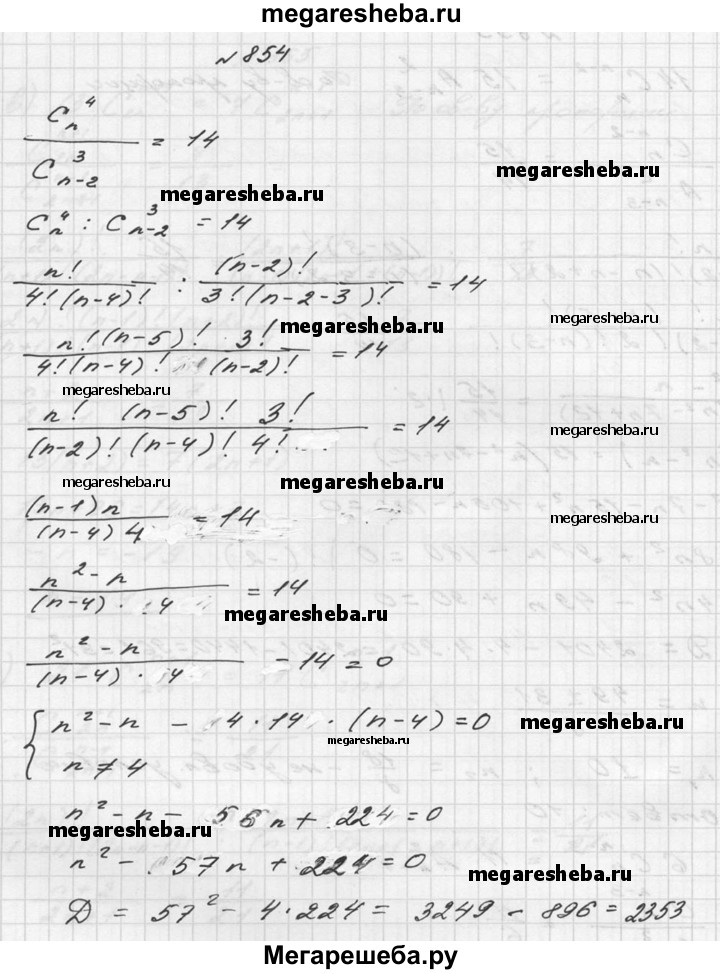 megaresheba.ru
№ 854
C_n^4 / C_{n-2}^3 = 14
megaresheba.ru
megaresheba.ru
C_n^4 : C_{n-2}^3 = 14
n! / 4!(n-4)! : (n-2)! / 3!(n-2-3)! = 14
megaresheba.ru
megaresheba.ru
n!(n-5)! 3! / 4!(n-4)! (n-2)! = 14
megaresheba.ru
n! (n-5)! 3! / (n-2)! (n-4)! 4! = 14
megaresheba.ru
megaresheba.ru
megaresheba.ru
(n-1)n / (n-4) 4 = 14
megaresheba.ru
n² - n / (n-4) · 4 = 14
megaresheba.ru
megaresheba.ru
n² - n / (n-4) · 4 - 14 = 0
{ n² - n - 4 · 14 · (n-4) = 0
megaresheba.ru
megaresheba.ru
n ≠ 4
n² - n - 56n + 224 = 0
megaresheba.ru
n² - 57n + 224 = 0
megaresheba.ru
D = 57² - 4 · 224 = 3249 - 896 = 2353
Мегарешеба.ру